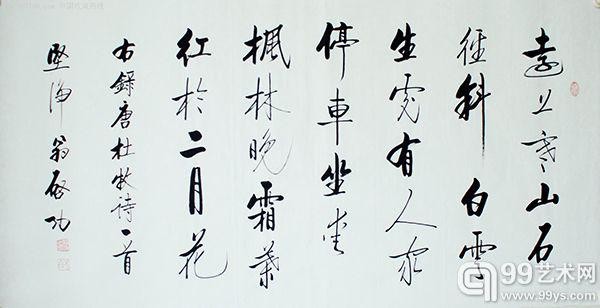 遠上寒山石
徑斜白雲
生處有人家
停車坐愛
楓林晚霜葉
紅於二月花
右錄唐杜牧詩一首
堅淨翁啟功
99艺术网
www.99ys.com